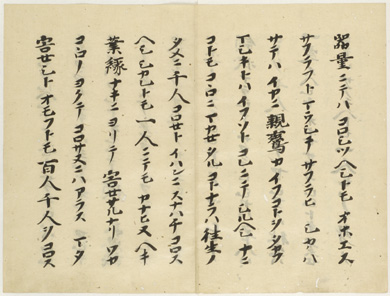 器量ニテハコロシツヘシトモオホエス
サフラフトマフシテサフラヒシカハ
サテハイカニ親鸞カイフコトヲタカフ
マシキトハイフソトコレニテシルヘシナニ
コトモコヽロニマカセタルコトナラハ往生ノ
タメニ千人コロセトイハンニスナハチコロス
ヘシシカレトモ一人ニテモカナヒヌヘキ
業縁ナキニヨリテ害セサルナリワカ
コヽロノヨクテコロサヌニハアラスマタ
害セシトオモフトモ百人千人ヲコロス